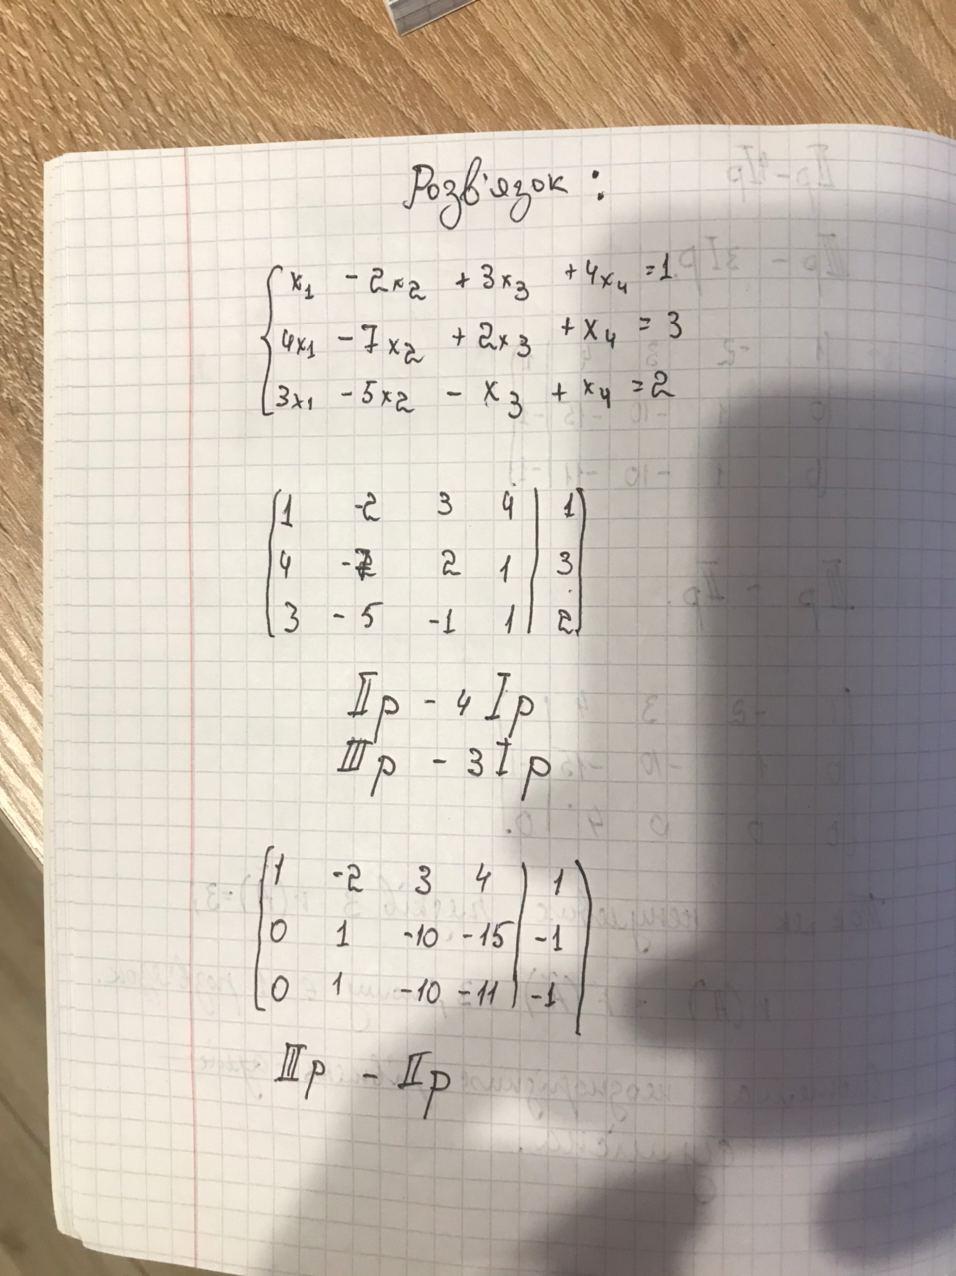 Розв'язок :
x₁ - 2x₂ + 3x₃ + 4x₄ = 1
4x₁ - 7x₂ + 2x₃ + x₄ = 3
3x₁ - 5x₂ - x₃ + x₄ = 2
1 -2 3 4 | 1
4 -7 2 1 | 3
3 -5 -1 1 | 2
IIр - 4 Iр
IIIр - 3 Iр
1 -2 3 4 | 1
0 1 -10 -15 | -1
0 1 -10 -11 | -1
IIIр - IIр